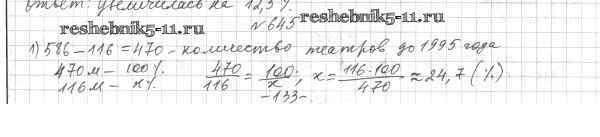 ответ: увеличилась на 12,5 %.
reshebnik5-11.ru
№ 645
reshebnik5-11.ru
1) 586 – 116 = 470 – количество театров до 1995 года
470 м – 100%
116 м – x%
470/116 = 100/x; x = 116·100/470 ≈ 24,7 (%)
–133–